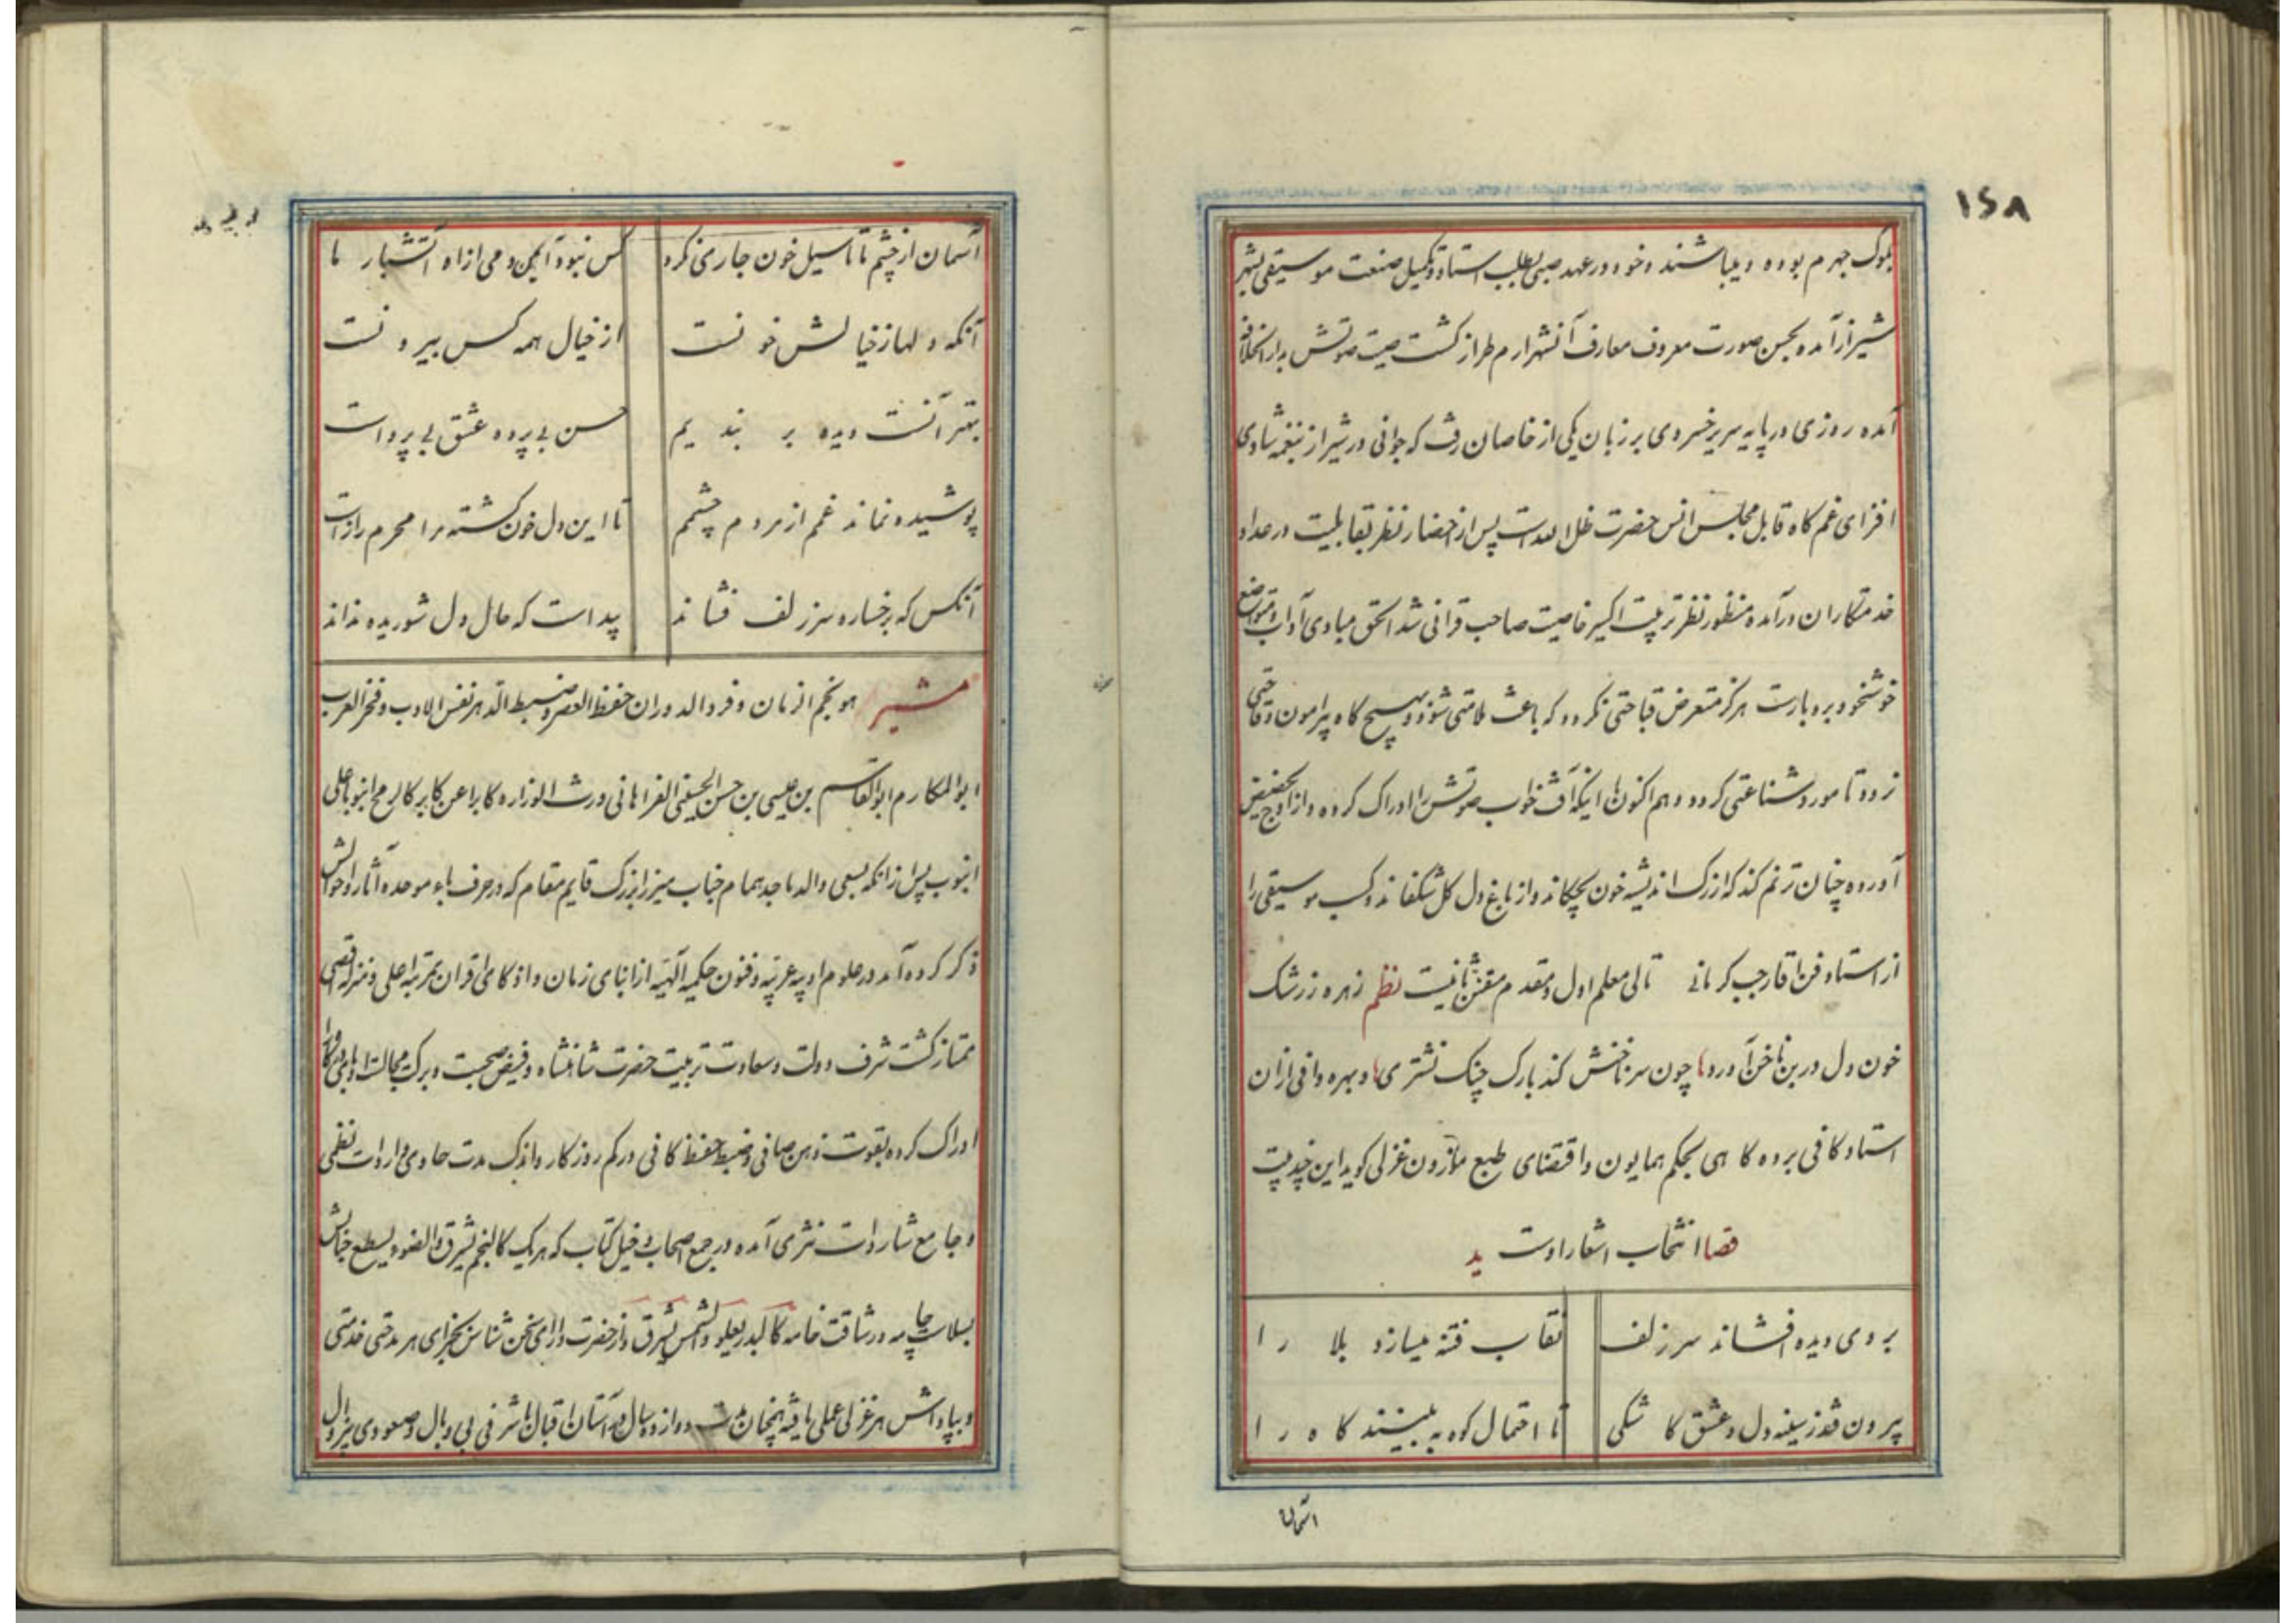 ۱۵۸
بلوک جهرم بوده و میباشند و خود در عهد صبی بطلب استاد و تکمیل صنعت موسیقی بشهر
شیراز آمده بحسن صورت معروف معارف آنشهر ارم طراز کشت صیت صوتش بدار الخلافه
آمده روزی در پایه سریر خسروی بر زبان یکی از خاصان رفت که جوانی در شیراز بنغمه شادی
افزای غم کاه قابل مجلس انس حضرت ظل الله است پس از احضار نظر بقابلیت در عداد
خدمتکاران درآمده منظور نظر تربیت اکسیر خاصیت صاحب قرانی شد الحق مبادی آداب و متواضع
خوشخو و بردبارست هرگز متعرض قباحتی نکردد که باعث ملامتی شود و بهیچ کاه پیرامون وقاحتی
نرود تا مورد شناعتی کردد و هم اکنون با اینکه آفت خواب صوتش را ادراک کرده و از اوج بحضیض
آورده چنان ترنم کند که از رک اندیشه خون بچکاند و از باغ دل کل بشکفاند و کسب موسیقی را
از استاد فن اقا رجب کرمانی تالی معلم اول و مقدم مقنن ثانیست نظم زهره ز رشک
خون دل در بن ناخن آورد چون سر ناخنش کند بارک چنک نشتری و بهره وافی ازان
استاد کافی برده کاهی بحکم همایون و اقتضای طبع موزون غزلی کوید این چند بیت
قصا انتخاب اشعار اوست ید
بروی دیده افشاند سر زلف نقاب فتنه میسازد بلا را
بیرون فتد ز سینه دل و عشق کاشکی تا احتمال کوه به بینند کاه را
آسمان
آسمان از چشم ما تا سیل خون جاری نکرد کس نبود آیمن دمی از اه آتشبار ما
آنکه دلها ز خیالش خونست از خیال همه کس بیرونست
بهتر آنست دیده بر بندیم حسن بی پرده عشق بی پرواست
پوشیده نماند غمم از مردم چشمم تا این دل خون کشته مرا محرم رازاست
آنکس که برخساره سر زلف فشاند پیداست که حال دل شوریده نداند
مشیر هو نجم الزمان و فرد الدوران حفظ العصر و ضبط الدهر نفس الادب و فخر العرب
ابوالمکارم ابوالقاسم بن عیسی بن حسن الحسینی الفراهانی ورث الوزاره کابرا عن کابر کالرمح انبوبا علی
انبوب پس از انکه بسعی والد ماجد همام جناب میرزا بزرک قایم مقام که در حرف باء موحده آثار و احوالش
ذکر کرده آمد در علوم ادبیه عربیه و فنون حکمیه آلهیه از ابنای زمان و اذکای اقران بمرتبه اعلی و منزله اقصی
ممتاز کشت شرف دولت و سعادت تربیت حضرت شاهنشاه و فیض صحبت و برک مجالست
ادراک کرده بقوت ذهن صافی و ضبط حفظ کافی در کم روزکار و اندک مدت حاوی واردات نظمی
و جامع شاردات نثری آمده در جمع اصحاب و خیل کتاب که هر یک کالنجم یشرق و الضوء یسطع جنابش
بسلاست چامه و رشاقت خامه کالبدر یعلو والشمس یشرق و از حضرت دارای سخن شناس بجزای هر مدحتی خدمتی
و بپاداش هر غزلی عملی یافته همچنان مدت دوازده سال در آستان اقبال با شرفی بی وبال و صعودی بیزوال